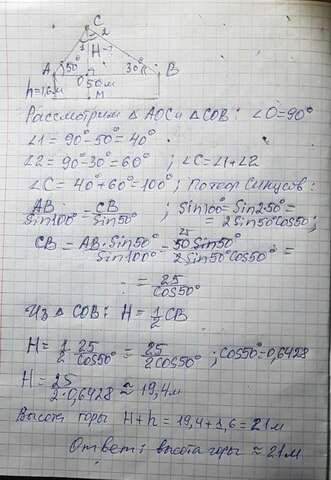 C
1 2
H-?
A 50° 30° B
O
h=1,6м 50м
M
Рассмотрим △AOC и △COB: ∠O=90°
∠1=90°-50°=40°
∠2=90°-30°=60° ; ∠C=∠1+∠2
∠C=40°+60°=100°; По теор Синусов:
AB/Sin100° = CB/Sin50° ; Sin100°=Sin2·50°=
=2Sin50°Cos50°;
CB = AB·Sin50°/Sin100° = 50 Sin50°/2Sin50°Cos50° =
25
= 25/Cos50°
Из △COB: H=1/2 CB
H=1/2 · 25/Cos50° = 25/2Cos50° ; Cos50°=0,6428
H=25/2·0,6428 ≈ 19,4м
Высота горы H+h=19,4+1,6=21м
Ответ: высота горы ≈21м